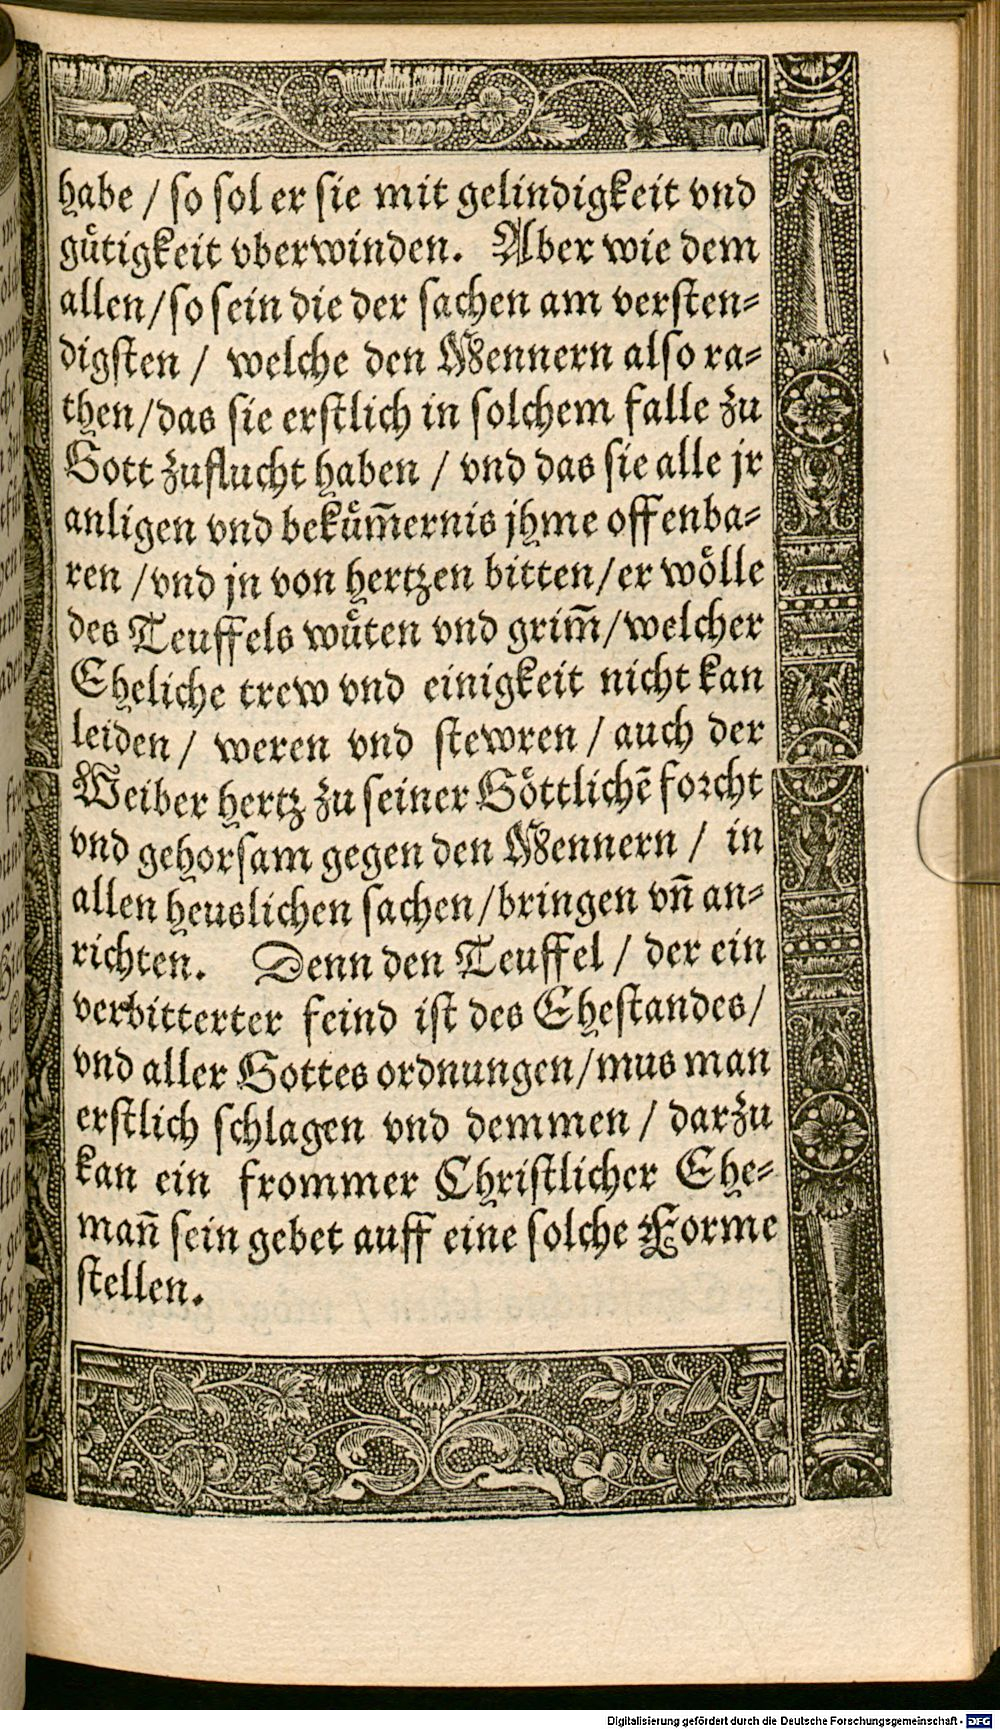 habe / so sol er sie mit gelindigkeit vnd
guͤtigkeit vberwinden. Aber wie dem
allen/so sein die der sachen am versten⸗
digsten / welche den Mennern also ra⸗
then/das sie erstlich in solchem falle zu
Gott zuflucht haben / vnd das sie alle jr
anligen vnd bekuͤm̃ernis jhme offenba⸗
ren /vnd jn von hertzen bitten/er woͤlle
des Teuffels wuͤten vnd grim̃/welcher
Eheliche trew vnd einigkeit nicht kan
leiden / weren vnd stewren / auch der
Weiber hertz zu seiner Goͤttlichẽ forcht
vnd gehorsam gegen den Mennern / in
allen heuslichen sachen/bringen vñ an⸗
richten. Denn den Teuffel / der ein
verbitterter feind ist des Ehestandes/
vnd aller Gottes ordnungen/mus man
erstlich schlagen vnd demmen / darzu
kan ein frommer Christlicher Ehe⸗
mañ sein gebet auff eine solche Forme
stellen.
Digitalisierung gefördert durch die Deutsche Forschungsgemeinschaft - DFG